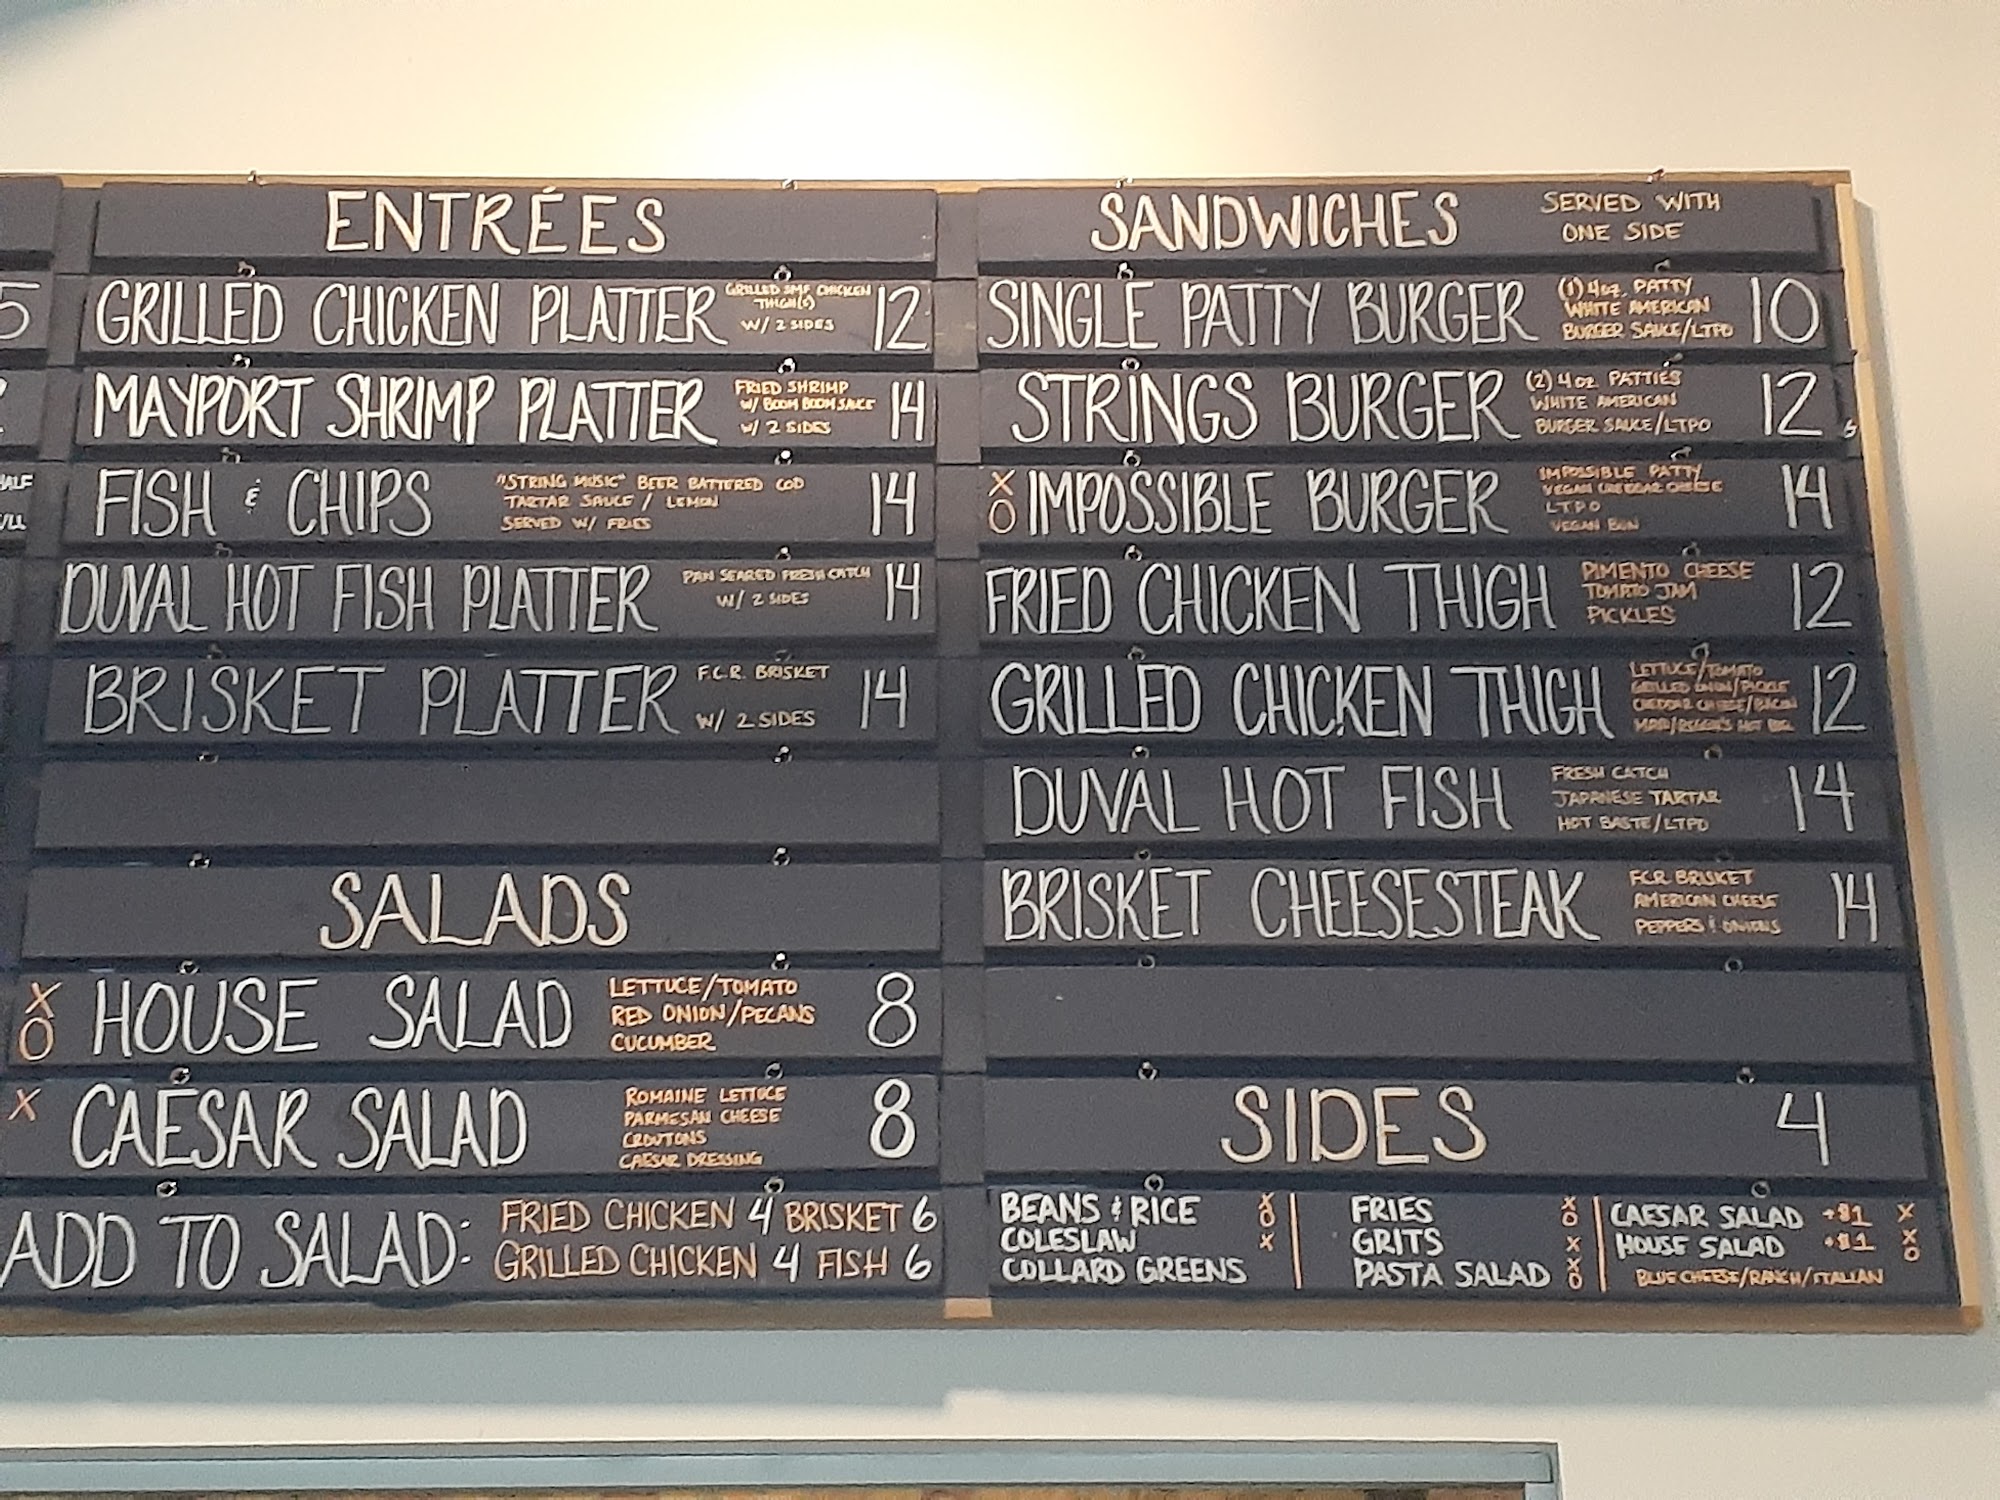 5
HALF
ENTRÉES
GRILLED CHICKEN PLATTER
GRILLED SMF CHICKEN
THIGH(S)
W/ 2 SIDES
12
MAYPORT SHRIMP PLATTER
FRIED SHRIMP
W/ BOOM BOOM SAUCE
W/ 2 SIDES
14
FISH & CHIPS
"STRING MUSIC" BEER BATTERED COD
TARTAR SAUCE / LEMON
SERVED W/ FRIES
14
DUVAL HOT FISH PLATTER
PAN SEARED FRESH CATCH
W/ 2 SIDES
14
BRISKET PLATTER
F.C.R. BRISKET
W/ 2 SIDES
14
SALADS
X
O
HOUSE SALAD
LETTUCE/TOMATO
RED ONION/PECANS
CUCUMBER
8
X
CAESAR SALAD
ROMAINE LETTUCE
PARMESAN CHEESE
CROUTONS
CAESAR DRESSING
8
ADD TO SALAD:
FRIED CHICKEN 4 BRISKET 6
GRILLED CHICKEN 4 FISH 6
SANDWICHES
SERVED WITH
ONE SIDE
SINGLE PATTY BURGER
(1) 4oz. PATTY
WHITE AMERICAN
BURGER SAUCE/LTPO
10
STRINGS BURGER
(2) 4oz. PATTIES
WHITE AMERICAN
BURGER SAUCE/LTPO
12
X
O
IMPOSSIBLE BURGER
IMPOSSIBLE PATTY
VEGAN CHEDDAR CHEESE
LTPO
VEGAN BUN
14
FRIED CHICKEN THIGH
PIMENTO CHEESE
TOMATO JAM
PICKLES
12
GRILLED CHICKEN THIGH
LETTUCE/TOMATO
GRILLED ONION/PICKLE
CHEDDAR CHEESE/BACON
HOT
12
DUVAL HOT FISH
FRESH CATCH
JAPANESE TARTAR
HOT BASTE/LTPO
14
BRISKET CHEESESTEAK
F.C.R. BRISKET
AMERICAN CHEESE
PEPPERS & ONIONS
14
SIDES 4
BEANS & RICE X O
COLESLAW X
COLLARD GREENS
FRIES X O
GRITS X
PASTA SALAD X O
CAESAR SALAD +$1 X
HOUSE SALAD +$1 X O
BLUE CHEESE/RANCH/ITALIAN